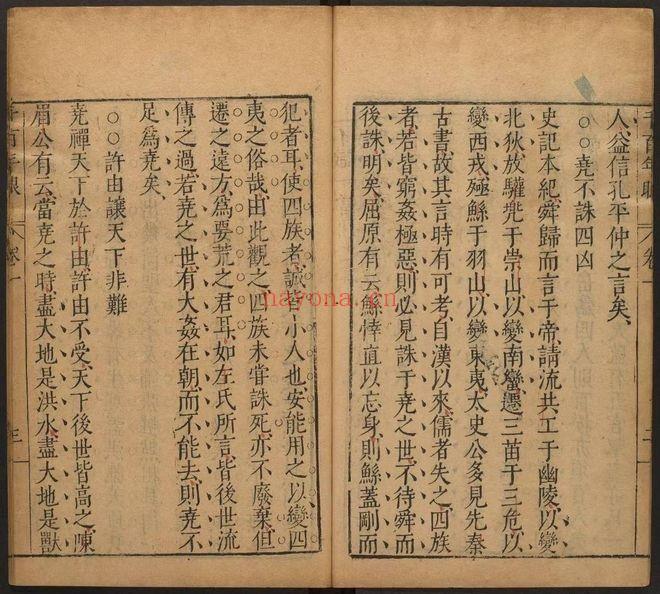 人益信孔平仲之言矣、
○○堯不誅四凶
史記本紀、舜歸而言于帝、請流共工于幽陵、以變
北狄、放驩兜于崇山、以變南蠻、遷三苗于三危、以
變西戎、殛鯀于羽山、以變東夷、太史公多見先秦
古書、故其言時有可考、自漢以來、儒者失之、四族
者、若皆窮姦極惡、則必見誅于堯之世、不待舜而
後誅明矣、屈原有云、鯀悻直以忘身、則鯀蓋剛而
千百年眼
卷一
三
犯者耳、使四族者、誠皆小人也、安能用之以變四
夷之俗哉、由此觀之、四族未嘗誅死、亦不廢棄、但
遷之遠方、爲要荒之君耳、如左氏所言、皆後世流
傳之過、若堯之世、有大姦在朝、而不能去、則堯不
足爲堯矣、
○○許由讓天下非難
堯禪天下於許由、許由不受、天下後世皆高之、陳
眉公有云、當堯之時、盡大地是洪水、盡大地是獸
千百年眼
卷一
三
nayona.cn